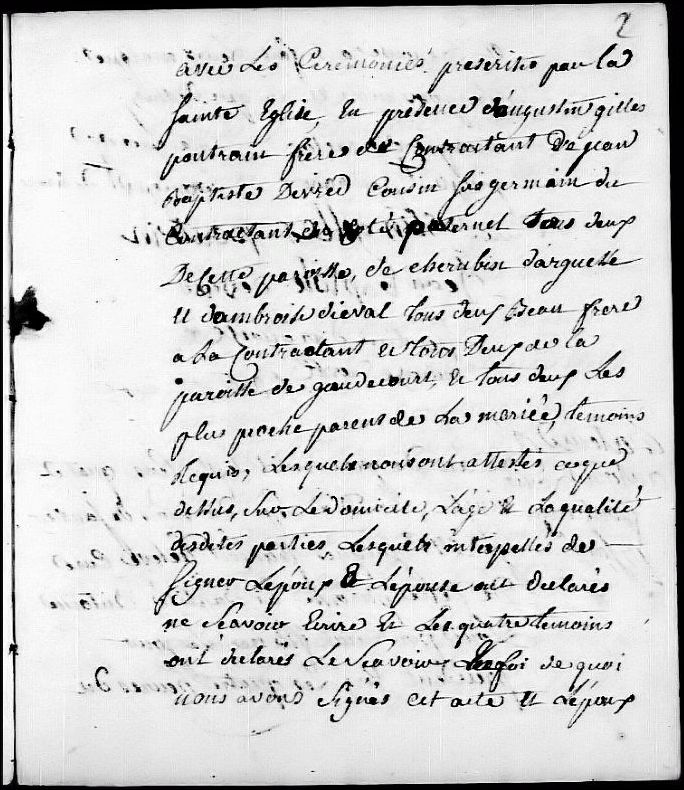 2
avec Les Ceremonies prescrites par la
Sainte Eglise, En présence d'augustin gilles
pontrain frère du Contractant De jean
Baptiste Devred Cousin sus germain du
Contractant du coté paternel tous deux
De Cette paroisse, de cherubin darguelle
et d'ambroise dieval tous deux Beau frere
a La Contractant et tous Deux de la
paroisse de gaudecourt, et tous deux Les
plus proche parens de La mariée, temoins
Requis, Lesquels nous ont attestés ce que
dessus, sur Le Domicile, L'age et La qualité
desdites parties, Lesquels interpellés de
signer L'époux et L'épouse ont declarés
ne Scavoir Ecrire et Les quatre temoins
ont declarés Le Scavoir, En foi de quoi
nous avons signés cet acte et L'époux